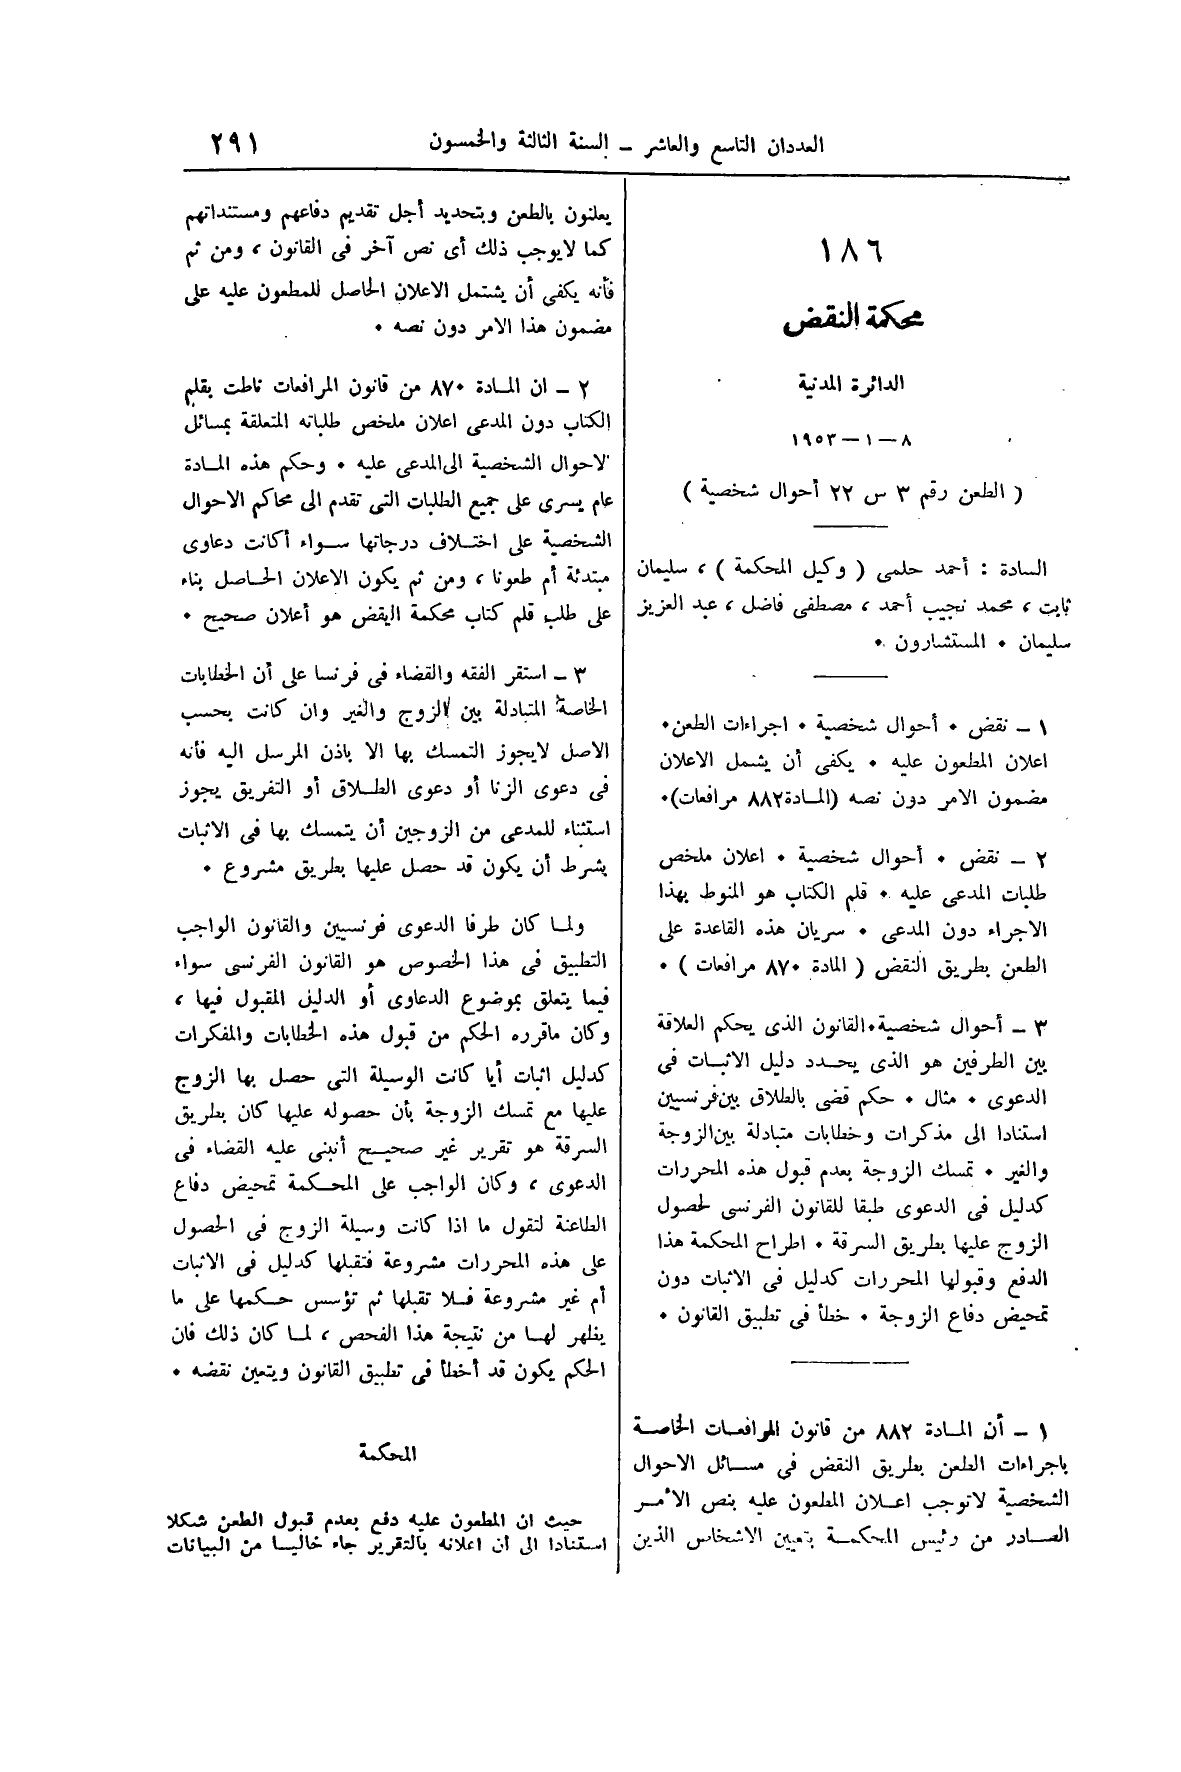 العددان التاسع والعاشر – السنة الثالثة والخمسون ٢٩١
١٨٦
محكمة النقض
الدائرة المدنية
٨ – ١ – ١٩٥٣
( الطعن رقم ٣ س ٢٢ أحوال شخصية )
السادة : أحمد حلمى ( وكيل المحكمة ) ، سليمان
ثابت ، محمد نجيب أحمد ، مصطفى فاضل ، عبد العزيز
سليمان • المستشارون •
١ – نقض • أحوال شخصية • اجراءات الطعن•
اعلان المطعون عليه • يكفى أن يشمل الاعلان
مضمون الامر دون نصه (المادة٨٨٢ مرافعات)•
٢ – نقض • أحوال شخصية • اعلان ملخص
طلبات المدعى عليه • قلم الكتاب هو المنوط بهذا
الاجراء دون المدعى • سريان هذه القاعدة على
الطعن بطريق النقض ( المادة ٨٧٠ مرافعات ) •
٣ – أحوال شخصية•القانون الذى يحكم العلاقة
بين الطرفين هو الذى يحدد دليل الاثبات فى
الدعوى • مثال • حكم قضى بالطلاق بين‌فرنسيين
استنادا الى مذكرات وخطابات متبادلة بين‌الزوجة
والغير • تمسك الزوجة بعدم قبول هذه المحررات
كدليل فى الدعوى طبقا للقانون الفرنسى لحصول
الزوج عليها بطريق السرقة • اطراح المحكمة هذا
الدفع وقبولها المحررات كدليل فى الاثبات دون
تمحيض دفاع الزوجة • خطأ فى تطبيق القانون •
١ – أن المادة ٨٨٢ من قانون المرافعات الخاصة
باجراءات الطعن بطريق النقض فى مسائل الاحوال
الشخصية لاتوجب اعلان المطعون عليه بنص الأمر
الصادر من رئيس المحكمة بتعيين الاشخاس الذين
يعلنون بالطعن وبتحديد أجل تقديم دفاعهم ومستنداتهم
كما لايوجب ذلك أى نص آخر فى القانون ، ومن ثم
فأنه يكفى أن يشتمل الاعلان الحاصل للمطعون عليه على
مضمون هذا الامر دون نصه •
٢ – ان المادة ٨٧٠ من قانون المرافعات ناطت بقلم
الكتاب دون المدعى اعلان ملخص طلباته المتعلقة بمسائل
لاحوال الشخصية الى‌المدعى عليه • وحكم هذه المادة
عام يسرى على جميع الطلبات التى تقدم الى محاكم الاحوال
الشخصية على اختلاف درجاتها سواء أكانت دعاوى
مبتدئة أم طعونا ، ومن ثم يكون الاعلان الحاصل بناء
على طلب قلم كتاب محكمة اليقض هو أعلان صحيح •
٣ – استقر الفقه والقضاء فى فرنسا على أن الخطابات
الخاصة المتبادلة بين الزوج والغير وان كانت بحسب
الاصل لايجوز التمسك بها الا باذن المرسل اليه فأنه
فى دعوى الزنا أو دعوى الطلاق أو التفريق يجوز
استثناء للمدعى من الزوجين أن يتمسك بها فى الاثبات
بشرط أن يكون قد حصل عليها بطريق مشروع •
ولما كان طرفا الدعوى فرنسيين والقانون الواجب
التطبيق فى هذا الخصوص هو القانون الفرنسى سواء
فيما يتعلق بموضوع الدعاوى أو الدليل المقبول فيها ،
وكان ماقرره الحكم من قبول هذه الخطابات والمفكرات
كدليل اثبات أيا كانت الوسيلة التى حصل بها الزوج
عليها مع تمسك الزوجة بأن حصوله عليها كان بطريق
السرقة هو تقرير غير صحيح أنبنى عليه القضاء فى
الدعوى ، وكان الواجب على المحكمة تمحيض دفاع
الطاعنة لتقول ما اذا كانت وسيلة الزوج فى الحصول
على هذه المحررات مشروعة فتقبلها كدليل فى الاثبات
أم غير مشروعة فلا تقبلها ثم تؤسس حكمها على ما
يظهر لها من نتيجة هذا الفحص ، لما كان ذلك فان
الحكم يكون قد أخطأ فى تطبيق القانون ويتعين نقضه •
المحكمة
حيث ان المطعون عليه دفع بعدم قبول الطعن شكلا
استنادا الى أن اعلانه بالتقرير جاء خاليا من البيانات